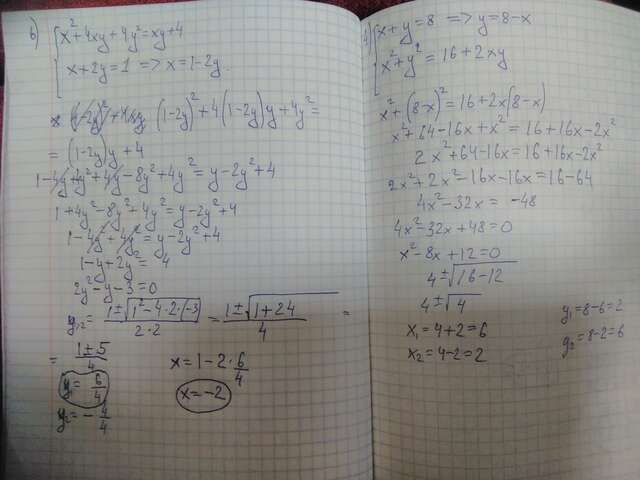 б) { x² + 4xy + 4y² = xy + 4
x + 2y = 1 => x = 1 - 2y
(1-2y)² + 4(1-2y)y + 4y² =
= (1-2y)y + 4
1 - 4y + 4y² + 4y - 8y² + 4y² = y - 2y² + 4
1 + 4y² - 8y² + 4y² = y - 2y² + 4
1 - 4y² + 4y² = y - 2y² + 4
1 - y + 2y² = 4
2y² - y - 3 = 0
y₁,₂ = (1 ± √(1² - 4·2·(-3)))/(2·2) = (1 ± √(1+24))/4 =
= (1 ± 5)/4
y₁ = 6/4
y₂ = -4/4
x = 1 - 2·6/4
x = -2
{ x + y = 8 => y = 8 - x
x² + y² = 16 + 2xy
x² + (8-x)² = 16 + 2x(8-x)
x² + 64 - 16x + x² = 16 + 16x - 2x²
2x² + 64 - 16x = 16 + 16x - 2x²
2x² + 2x² - 16x - 16x = 16 - 64
4x² - 32x = -48
4x² - 32x + 48 = 0
x² - 8x + 12 = 0
4 ± √(16-12)
4 ± √4
x₁ = 4 + 2 = 6
x₂ = 4 - 2 = 2
y₁ = 8 - 6 = 2
y₂ = 8 - 2 = 6